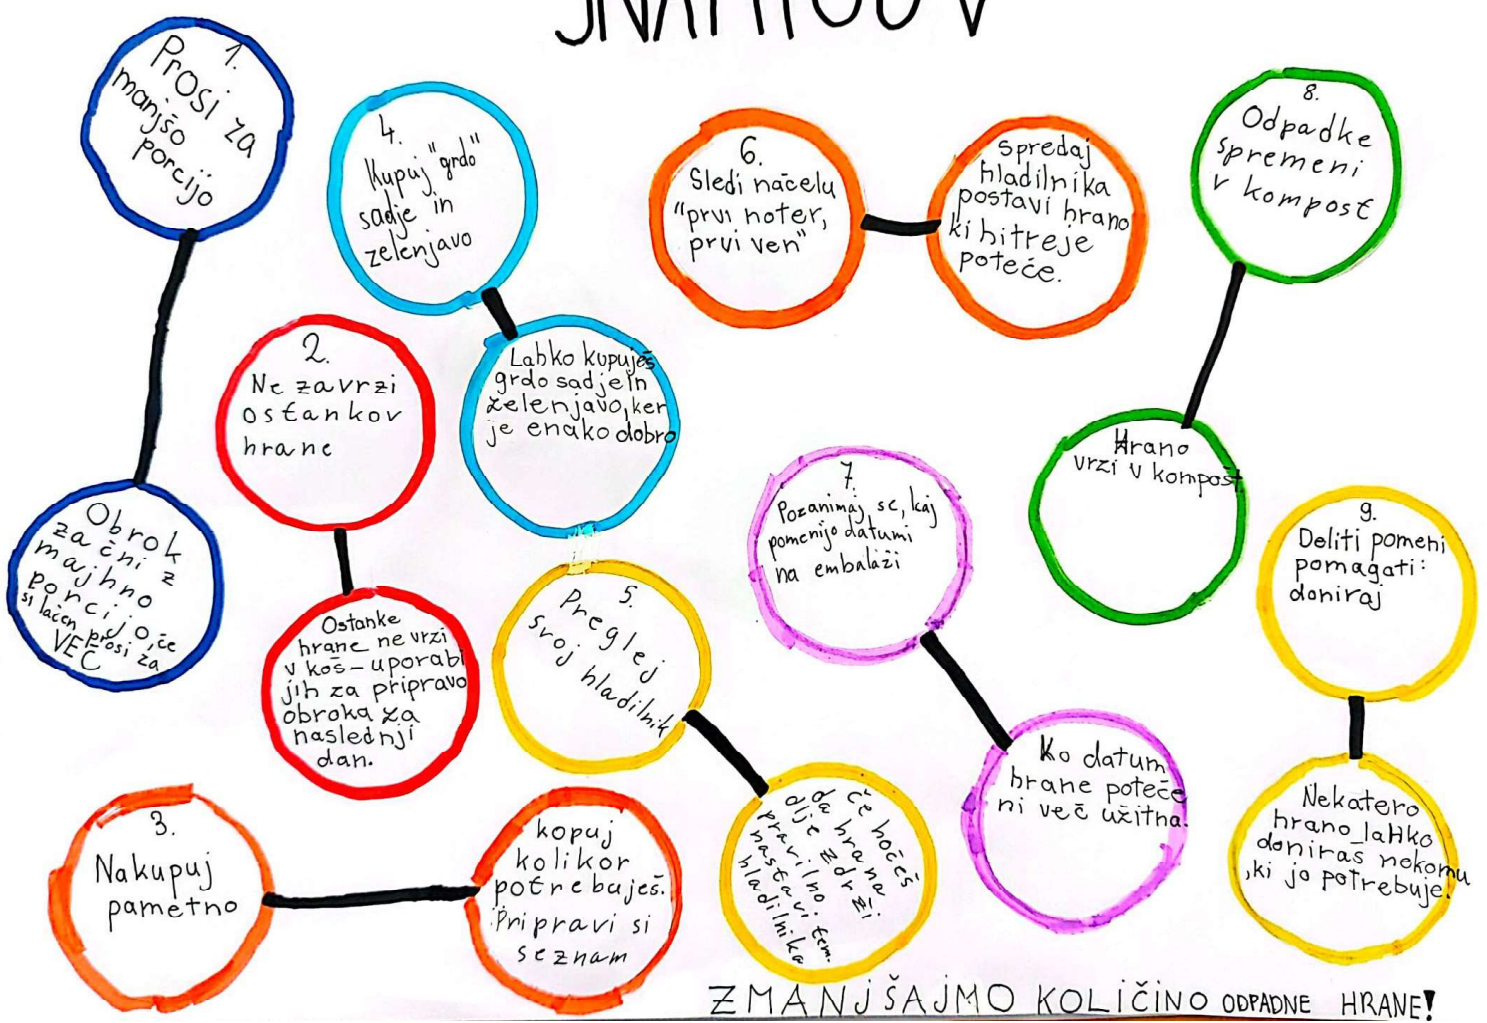 1.
Prosi za
manjšo
porcijo
Obrok
začni z
majhno
porcijo, če
si lačen prosi za
VEČ
2.
Ne zavrzi
ostankov
hrane
Ostanke
hrane ne vrzi
v koš - uporabi
jih za pripravo
obroka za
naslednji
dan.
3.
Nakupuj
pametno
kopuj
kolikor
potrebuješ.
Pripravi si
seznam
4.
Kupuj "grdo"
sadje in
zelenjavo
Lahko kupuješ
grdo sadje in
zelenjavo, ker
je enako dobro
5.
Preglej
svoj hladilnik
če hočeš
da hrana
dlje zdrži
pravilno
nastavi tem.
hladilnika
6.
Sledi načelu
"prvi noter,
prvi ven"
spredaj
hladilnika
postavi hrano
ki hitreje
poteče.
7.
Pozanimaj se, kaj
pomenijo datumi
na embalaži
Ko datum
hrane poteče
ni več užitna.
8.
Odpadke
spremeni
v kompost
Hrano
vrzi v kompost
9.
Deliti pomeni
pomagati:
doniraj
Nekatero
hrano lahko
doniraš nekomu
,ki jo potrebuje.
ZMANJŠAJMO KOLIČINO ODPADNE HRANE!